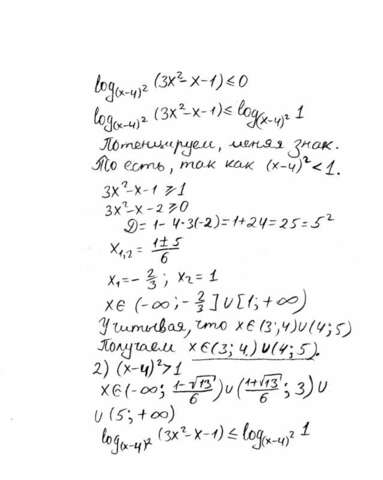 log_(x-4)² (3x²-x-1) ≤ 0
log_(x-4)² (3x²-x-1) ≤ log_(x-4)² 1
Потенцируем, меняя знак.
То есть, так как (x-4)² < 1.
3x²-x-1 ≥ 1
3x²-x-2 ≥ 0
D = 1-4·3(-2) = 1+24 = 25 = 5²
x₁,₂ = (1±5)/6
x₁ = -2/3 ; x₂ = 1
x ∈ (-∞; -2/3] ∪ [1; +∞)
Учитывая, что x ∈ (3; 4) ∪ (4; 5)
Получаем x ∈ (3; 4) ∪ (4; 5).
2) (x-4)² > 1
x ∈ (-∞; (1-√13)/6) ∪ ((1+√13)/6; 3) ∪
∪ (5; +∞)
log_(x-4)² (3x²-x-1) ≤ log_(x-4)² 1